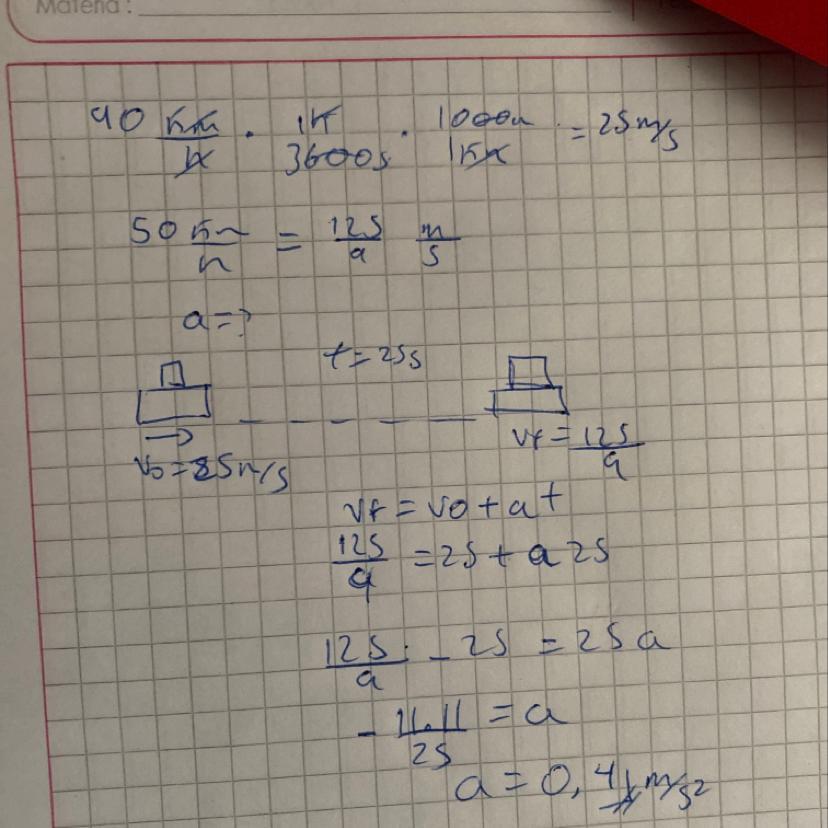 Materia:
90 km/h · 1h/3600s · 1000m/1km = 25 m/s
50 km/h = 125/9 m/s
a=?
t=25s
Vf=125/9
Vo=25m/s
Vf=Vo+at
125/9 =25+a25
125/9 -25=25a
-11.11/25 =a
a=0,4 m/s²